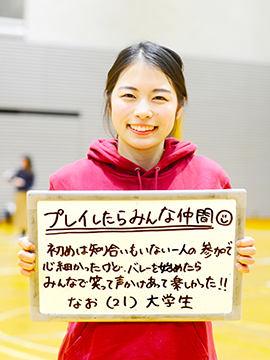 プレイしたらみんな仲間☺
初めは知り合いもいない一人の参加で
心細かったけど、バレーを始めたら
みんなで笑って声かけあって楽しかった!!
なお(21)大学生